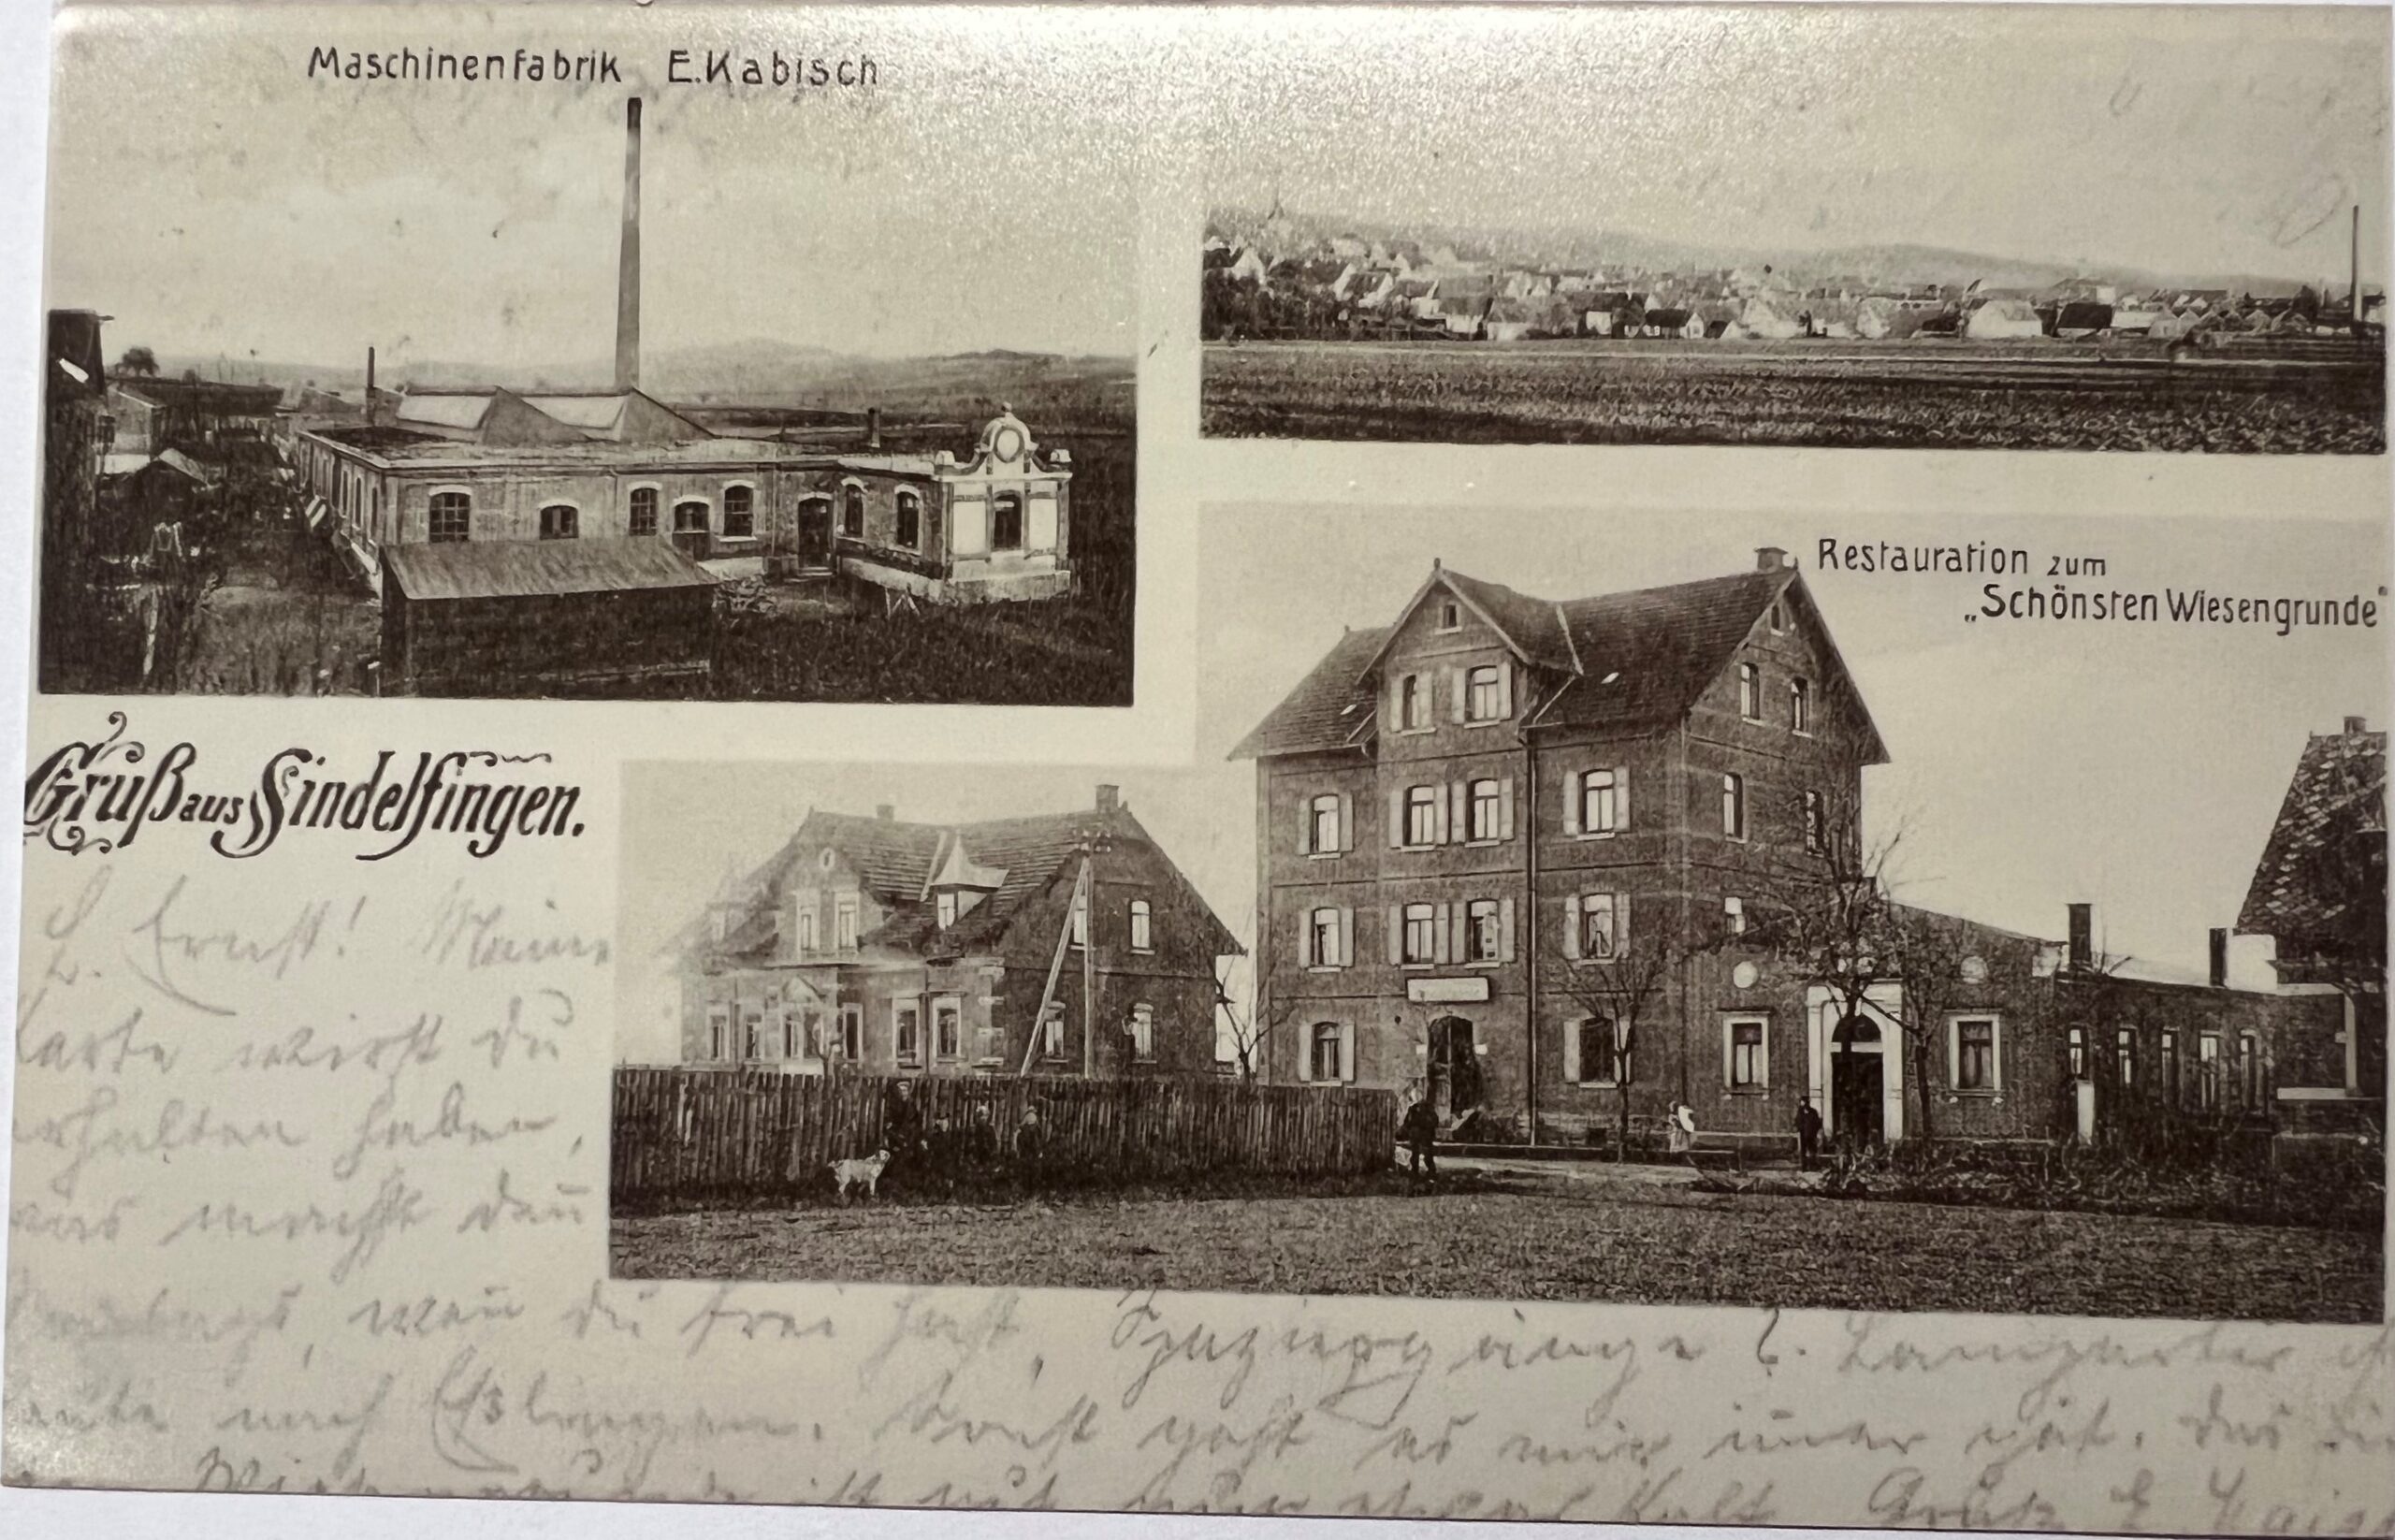 Maschinenfabrik E. Kabisch
Restauration zum
„Schönsten Wiesengrunde"
Gruß aus Sindelfingen.
L. Ernst! Meine
Karte wirst du
erhalten haben,
was machst dan̄
wen̄ du frei hast, Spaziergänge
nach Eßlingen. Sonst geht es mir im̄er gut. Das
ist Kalt Gruß E